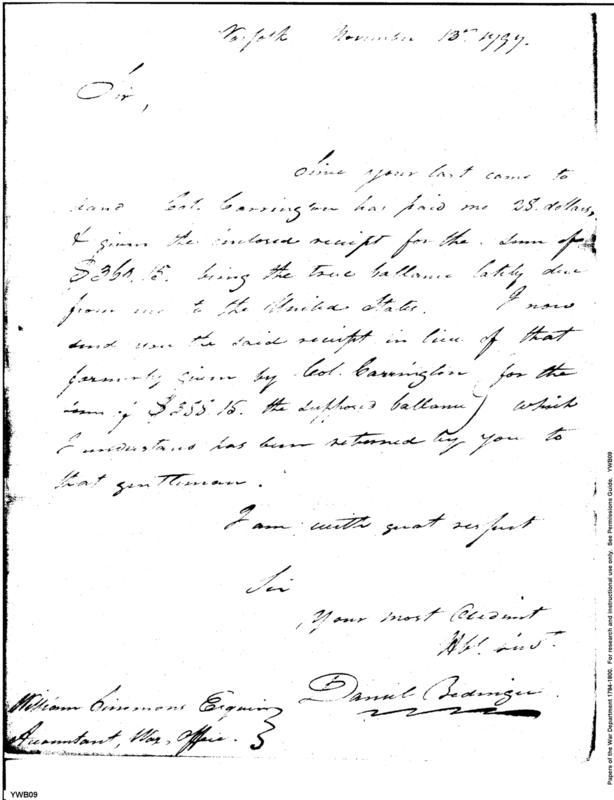 Norfolk November 13th 1797.
Sir,
Since your last came to
hand Col. Carrington has paid me 28. dollars,
& given the inclosed receipt for the sum of
being the true ballance lately due
from me to the United States. I now
send you the said receipt in lieu of that
formerly given by Col. Carrington (for the
sum of $355 15. the supposed ballance) which
I understand has been returned by you to
that gentleman.
I am with great respect
Sir
Your most Obedient
Hble. Servt.
Daniel Bedinger.
William Simmons Esquire
Accountant, War Office.
YWB09
Papers of the War Department 1784-1800. For research and instructional use only. See Permissions Guide. YWB09